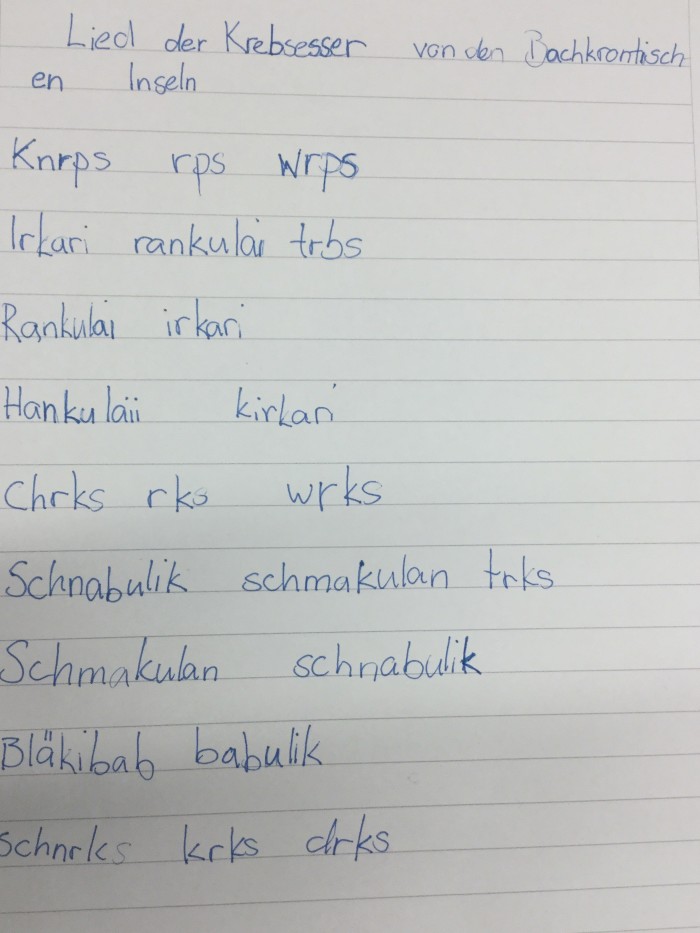 Lied der Krebsesser von den Bachkrontisch
en Inseln
Knrps rps wrps
Irkari rankulai trbs
Rankulai irkari
Hankulaii kirkari
Chrks rks wrks
Schnabulik schmakulan trks
Schmakulan schnabulik
Bläkibab babulik
Schnrks krks drks